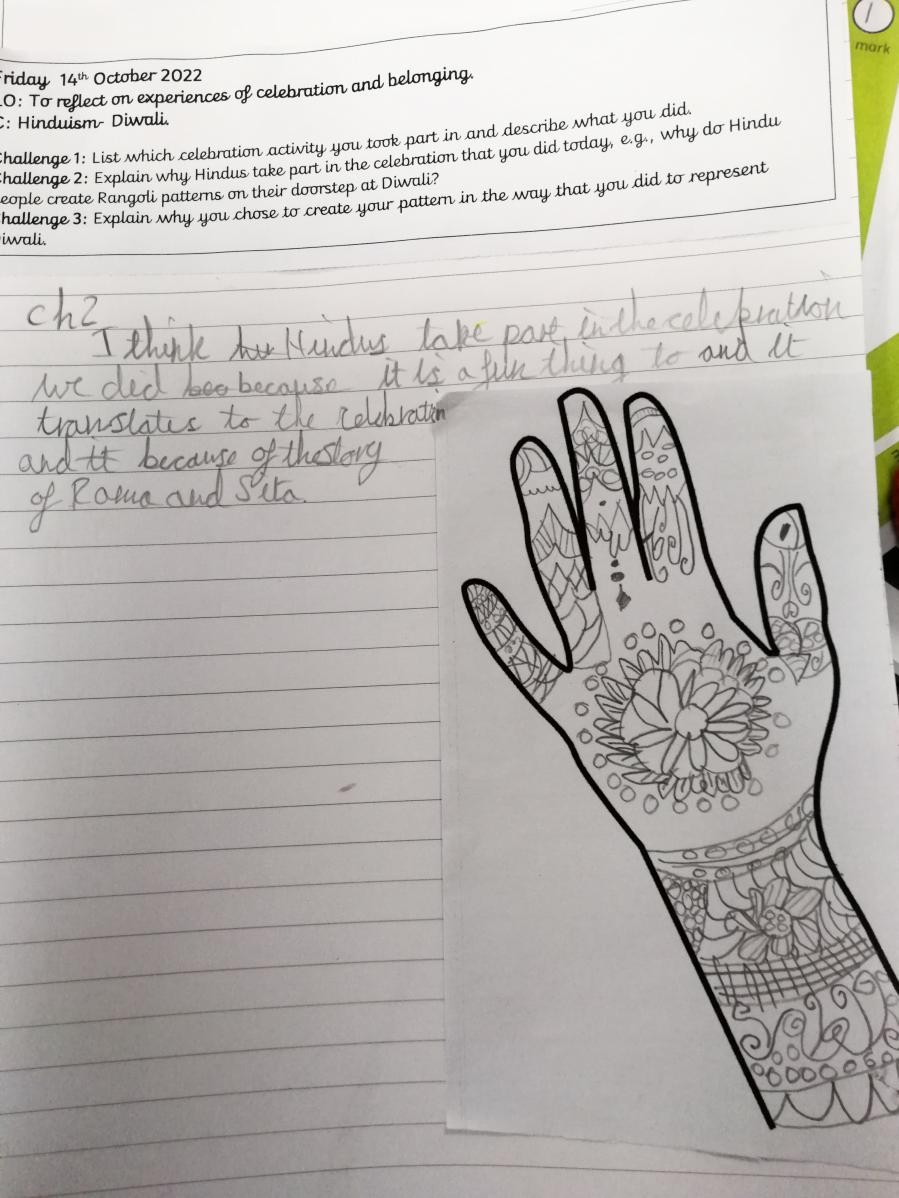 1
mark
Friday 14th October 2022
LO: To reflect on experiences of celebration and belonging.
C: Hinduism- Diwali.
Challenge 1: List which celebration activity you took part in and describe what you did.
Challenge 2: Explain why Hindus take part in the celebration that you did today, e.g., why do Hindu
people create Rangoli patterns on their doorstep at Diwali?
Challenge 3: Explain why you chose to create your pattern in the way that you did to represent
Diwali.
ch2
I think Hindus take part in the celebration
we did because it is a fun thing to and it
translates to the celebration
and it because of the story
of Rama and Sita.